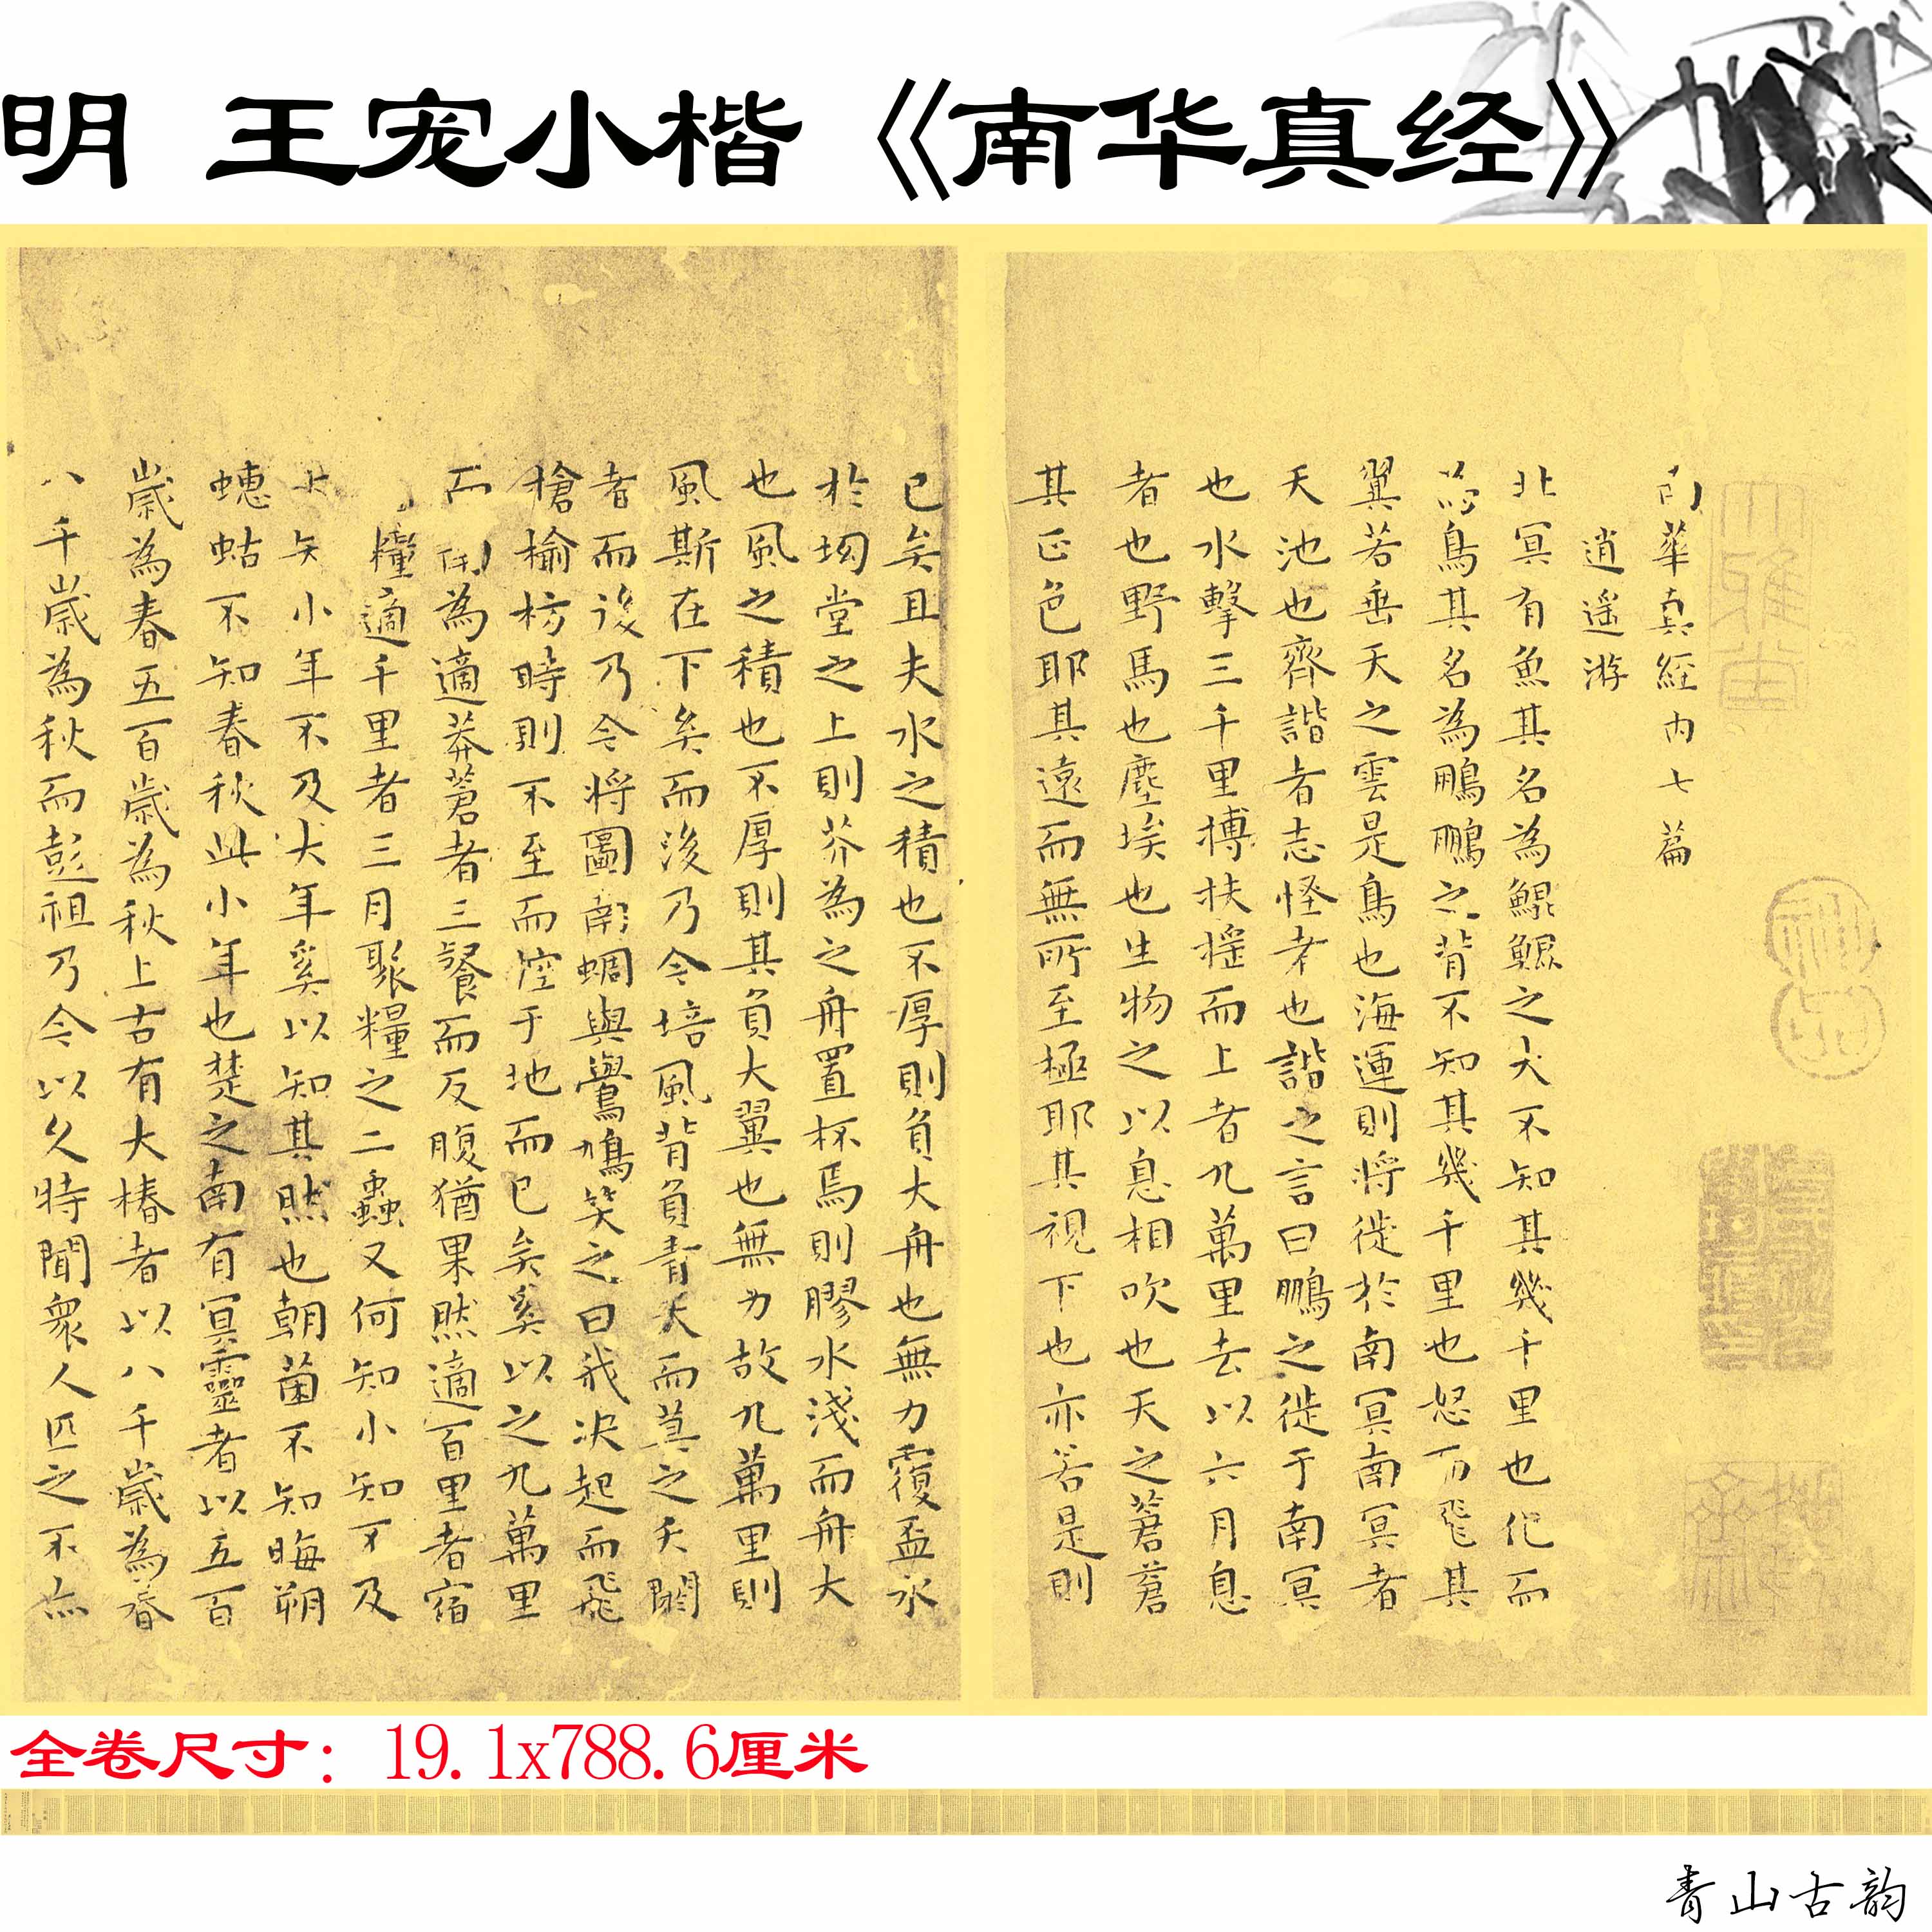 明 王宠小楷《南华真经》
南華真經内七篇
逍遥游
北冥有魚其名為鯤鯤之大不知其幾千里也化而
為鳥其名為鵬鵬之背不知其幾千里也怒而飛其
翼若垂天之雲是鳥也海運則將徙於南冥南冥者
天池也齊諧者志怪者也諧之言曰鵬之徙于南冥
也水擊三千里搏扶摇而上者九萬里去以六月息
者也野馬也塵埃也生物之以息相吹也天之蒼蒼
其正色耶其遠而無所至極耶其視下也亦若是則
已矣且夫水之積也不厚則負大舟也無力覆盃水
於坳堂之上則芥為之舟置杯焉則膠水淺而舟大
也風之積也不厚則其負大翼也無力故九萬里則
風斯在下矣而後乃今培風背負青天而莫之夭閼
者而後乃今將圖南蜩與鷽鳩笑之曰我決起而飛
槍榆枋時則不至而控于地而已矣奚以之九萬里
而為適莽蒼者三飡而反腹猶果然適百里者宿
糧適千里者三月聚糧之二蟲又何知小知不及
大知小年不及大年奚以知其然也朝菌不知晦朔
蟪蛄不知春秋此小年也楚之南有冥靈者以五百
歲為春五百歲為秋上古有大椿者以八千歲為春
八千歲為秋而彭祖乃今以久特聞衆人匹之不亦
全卷尺寸：19.1x788.6厘米
青山古韵